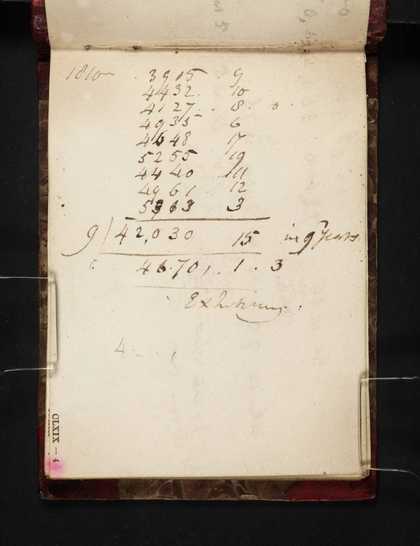 1810 3915 9
4432 10
4127 . 8 . 0
4935 6
4648 17
5255 19
4440 11
4961 12
5313 3
9 42,030 15 in 9 Years
4670, . 1 . 3
Exhibitions .
CLXIX - 4